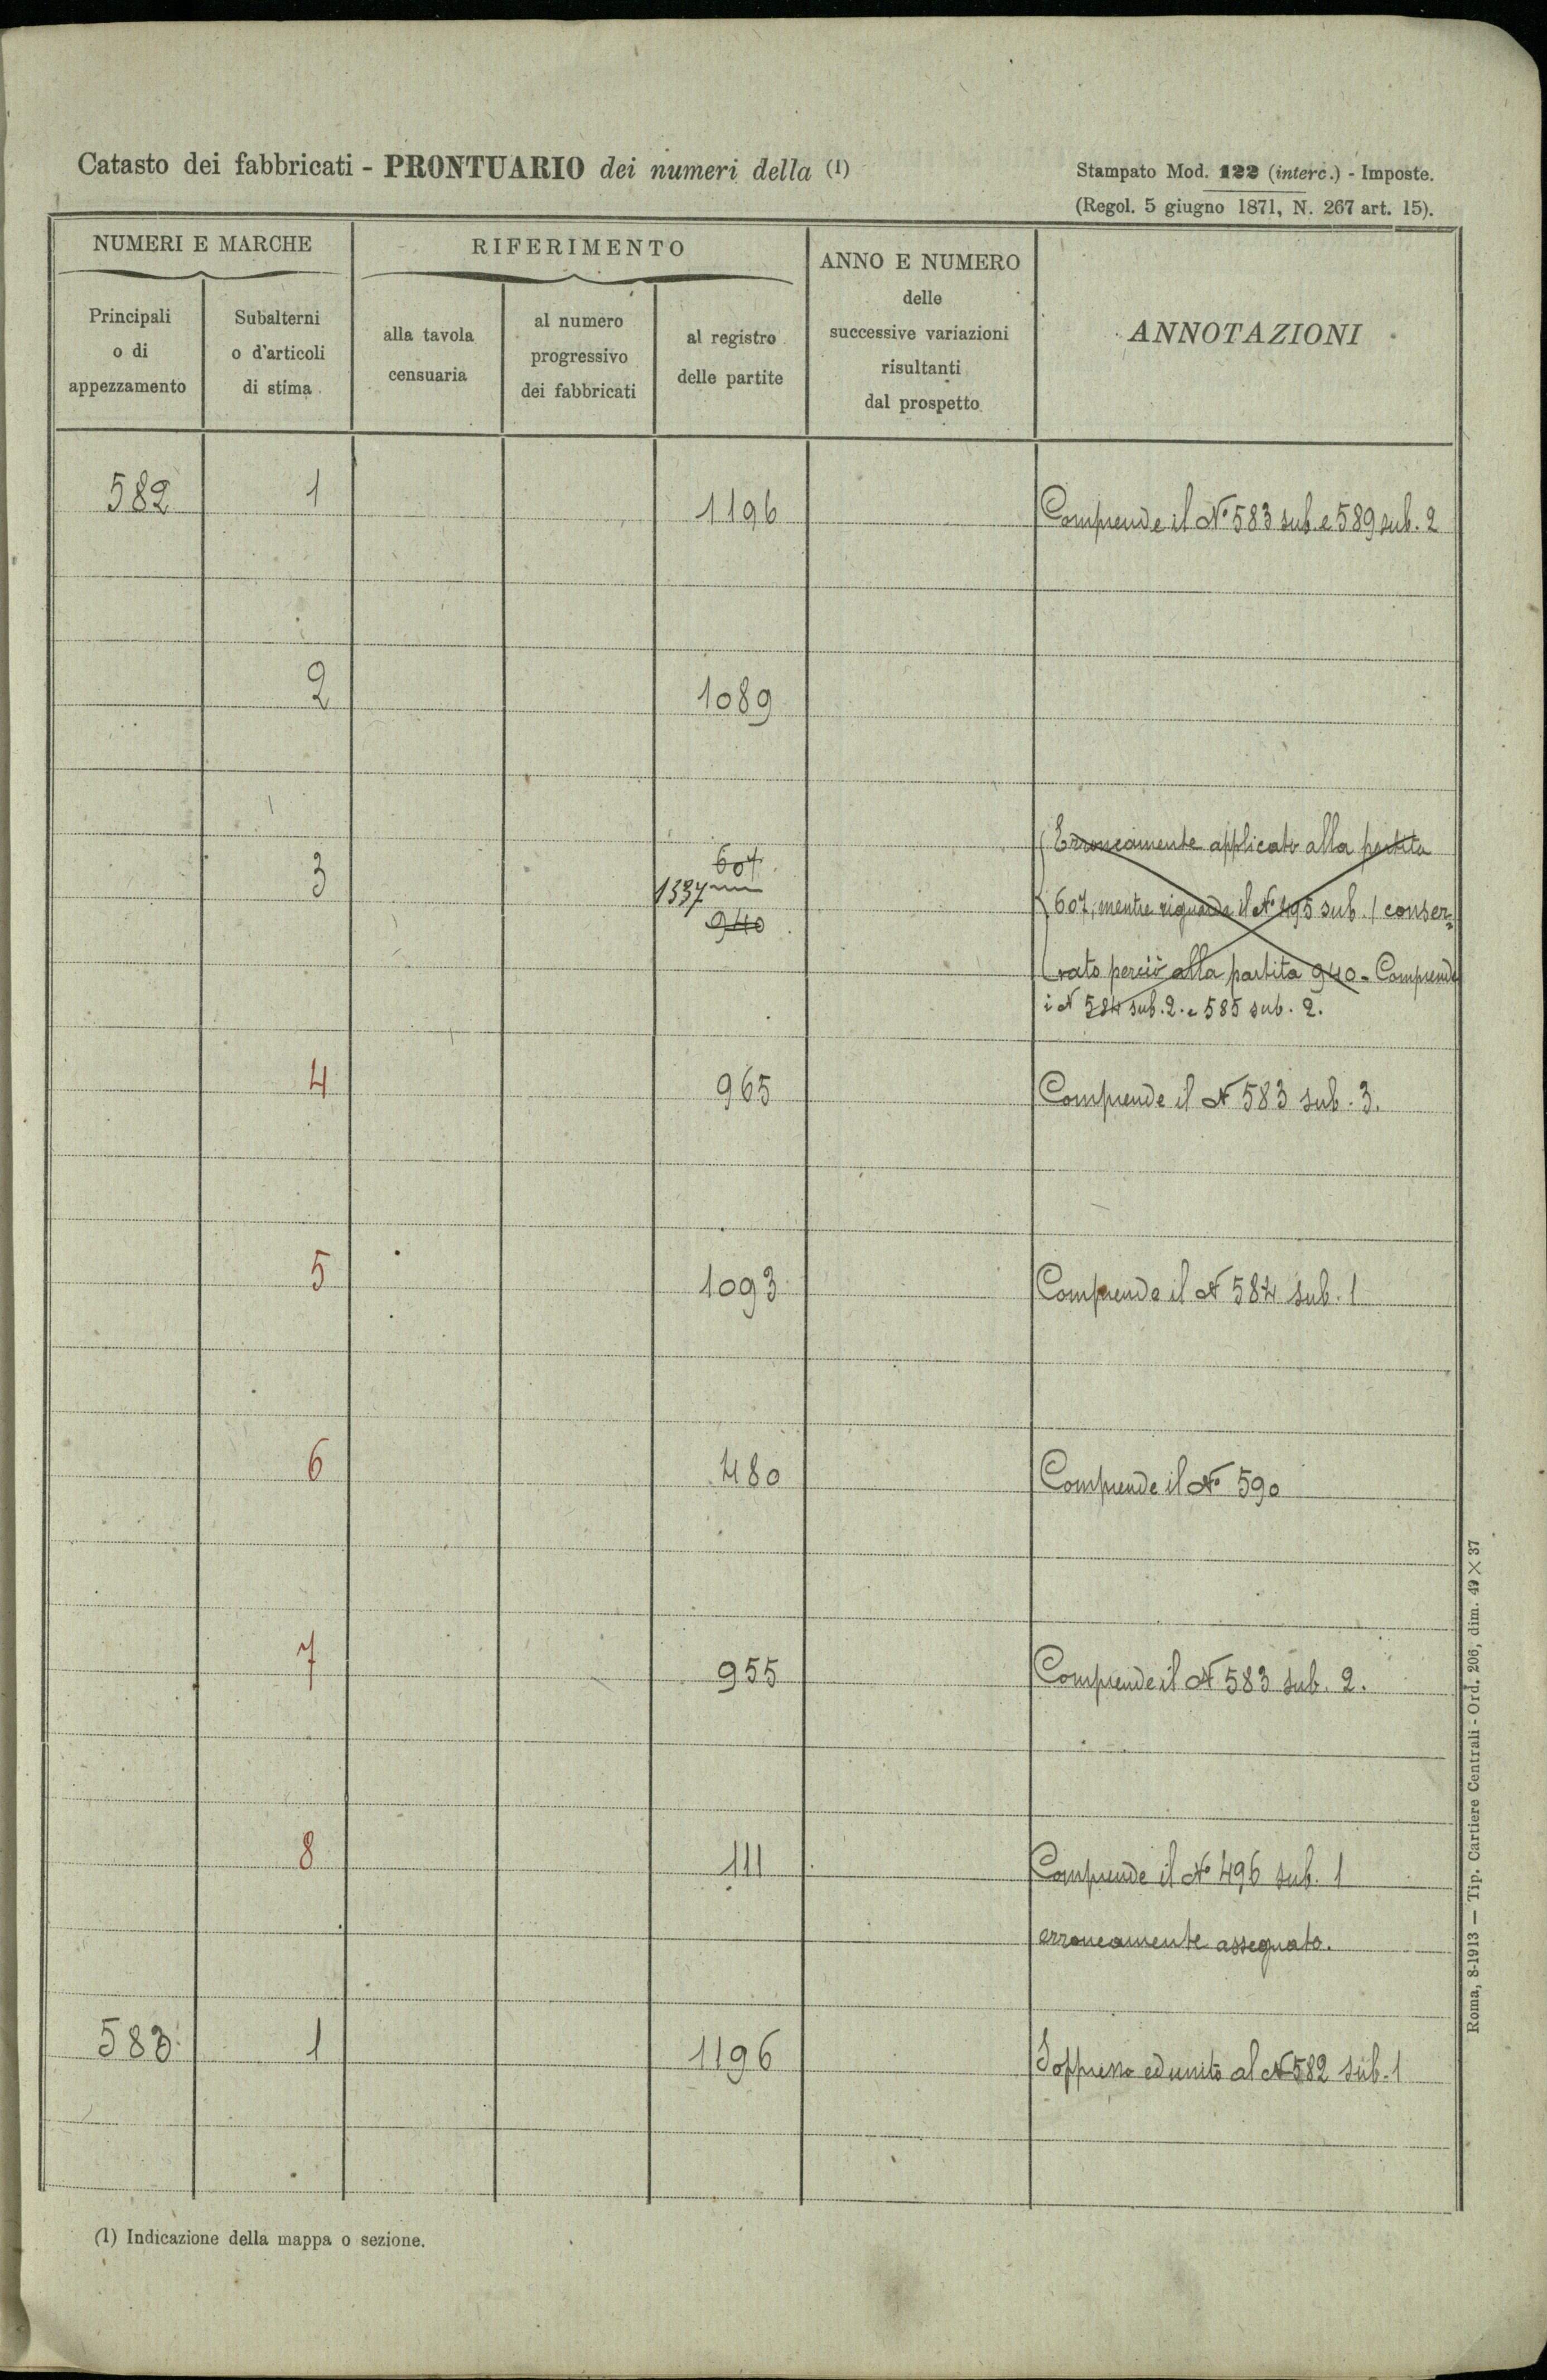 Catasto dei fabbricati - PRONTUARIO dei numeri della (1)
Stampato Mod. 122 (interc.) - Imposte.
(Regol. 5 giugno 1871, N. 267 art. 15).
NUMERI E MARCHE
RIFERIMENTO
ANNO E NUMERO
delle
successive variazioni
risultanti
dal prospetto
ANNOTAZIONI
Principali
o di
appezzamento
Subalterni
o d'articoli
di stima
alla tavola
censuaria
al numero
progressivo
dei fabbricati
al registro
delle partite
582 1 1196 Comprende il N° 583 sub. e 589 sub. 2
2 1089
3 607 Erroneamente applicato alla partita
1337 607, mentre riguarda il N° 495 sub. 1 conser=
940 vato perciò alla partita 940 - Comprende
i N 584 sub. 2. e 585 sub. 2.
4 965 Comprende il N 583 sub. 3.
5 1093 Comprende il N 584 sub. 1
6 480 Comprende il N° 590
7 955 Comprende il N 583 sub. 2.
8 111 Comprende il N° 496 sub. 1
erroneamente assegnato.
583 1 1196 Soppresso ed unito al N 582 sub. 1
(1) Indicazione della mappa o sezione.
Roma, 8-1913 — Tip. Cartiere Centrali - Ord. 206, dim. 49 × 37